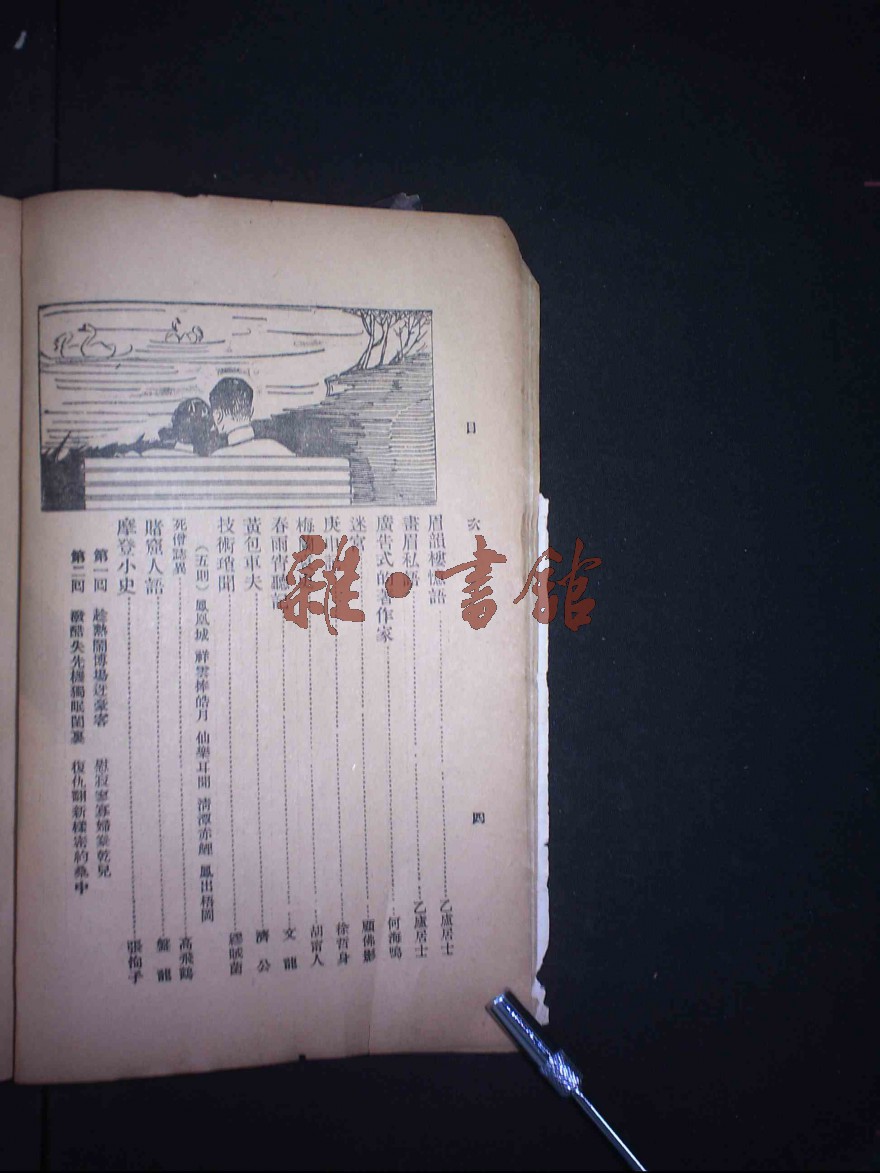 目次
四
眉韻樓憶語……乙盧居士
畫眉私……乙盧居士
廣告式的著作家……何海鳴
迷宮……顧佛影
庚……徐哲身
梅……胡甯人
春雨宵聽……文龍
黃包車夫……濟公
技術瑣聞……繆賊菌
（五則）鳳凰城 祥雲捧皓月 仙樂耳聞 清潭赤鯉 鳳出梧岡
死僧誌異……高飛鶴
賭窟人語……盤龍
摩登小史……張恂子
第一回 趁熱鬧博場迓豪客 慰寂寥寡婦棄乾兒
第二回 潑醋失先機獨眠閨裏 復仇翻新樣密約桑中
雜·書館